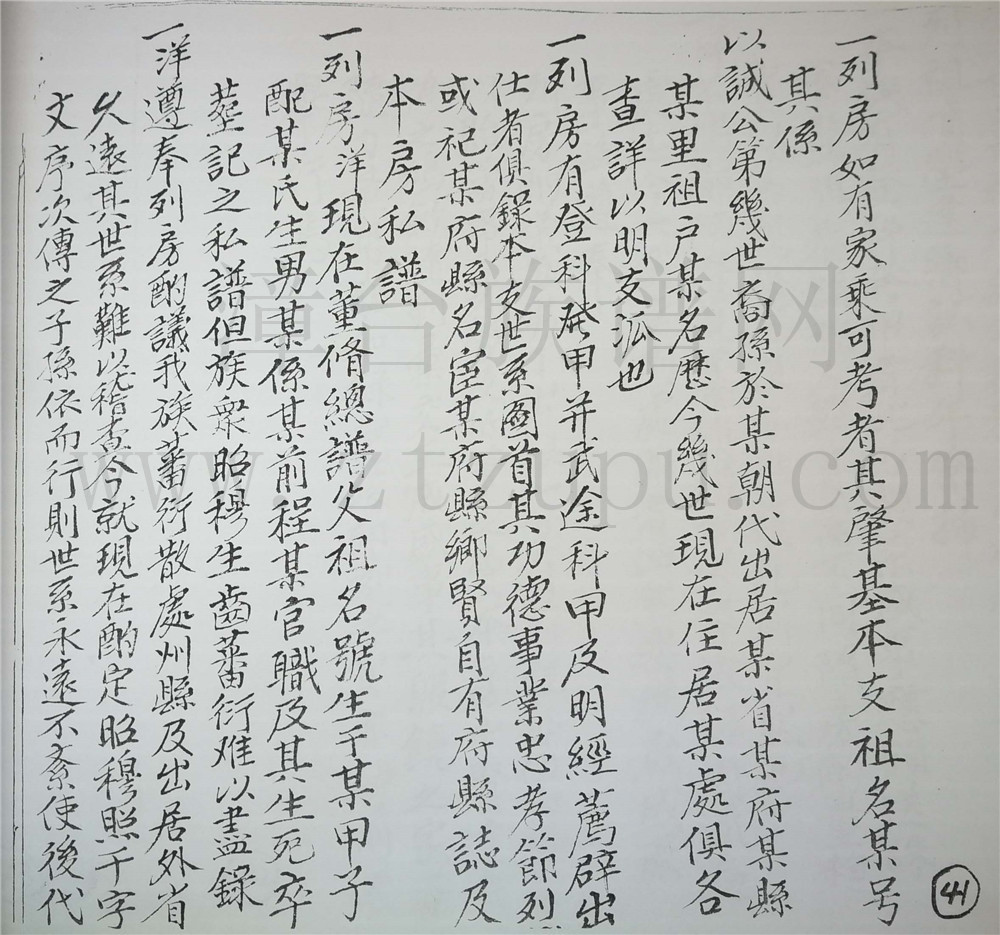 一列房如有家乘可考者其肇基本支祖名某号
其係
以誠公第幾世裔孫於某朝代出居某省某府某縣
某里祖户某名歷今幾世現在住居某處俱各
查詳以明支派也
一列房有登科發甲并武途科甲及明經薦辟出
仕者俱録本支世系圖首其功德事業忠孝節烈
或祀某府縣名宦某府縣鄉賢自有府縣誌及
本房私譜
一列房洋現在董脩總譜父祖名號生于某甲子
配某氏生男某係某前程某官職及其生死卒
塟記之私譜但族衆昭穆生齒蕃衍难以盡錄
一洋遵奉列房酌議我族蕃衍散處州縣及出居外省
久遠其世系難以稽查今就現在酌定昭穆照千字
文序次傳之子孫依而行則世系永遠不紊使後代
41
漳台族谱网
www.ztzupu.com